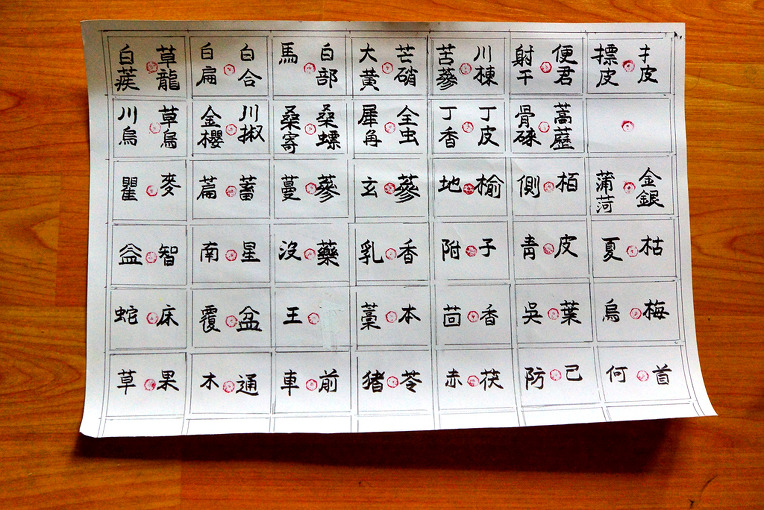 白蒺 草龍 白扁 白合 馬 白部 大黃 芒硝 苦蔘 川棟 射干 便君 摽皮 扌皮
川烏 草烏 金櫻 川椒 桑寄 桑螵 犀角 全虫 丁香 丁皮 骨碎
瞿麥 萹蓄 蔓蔘 玄蔘 地榆 側栢 蒲菏 金銀
益智 南星 沒藥 乳香 附子 靑皮 夏枯
蛇床 覆盆 王 藁本 茴香 吳葉 烏梅
草果 木通 車前 猪苓 赤茯 防己 何首